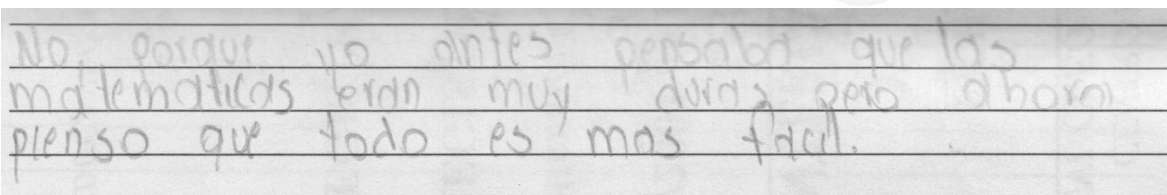 No, porque yo antes pensaba que las
matematicas eran muy duras pero ahora
pienso que todo es mas facil.